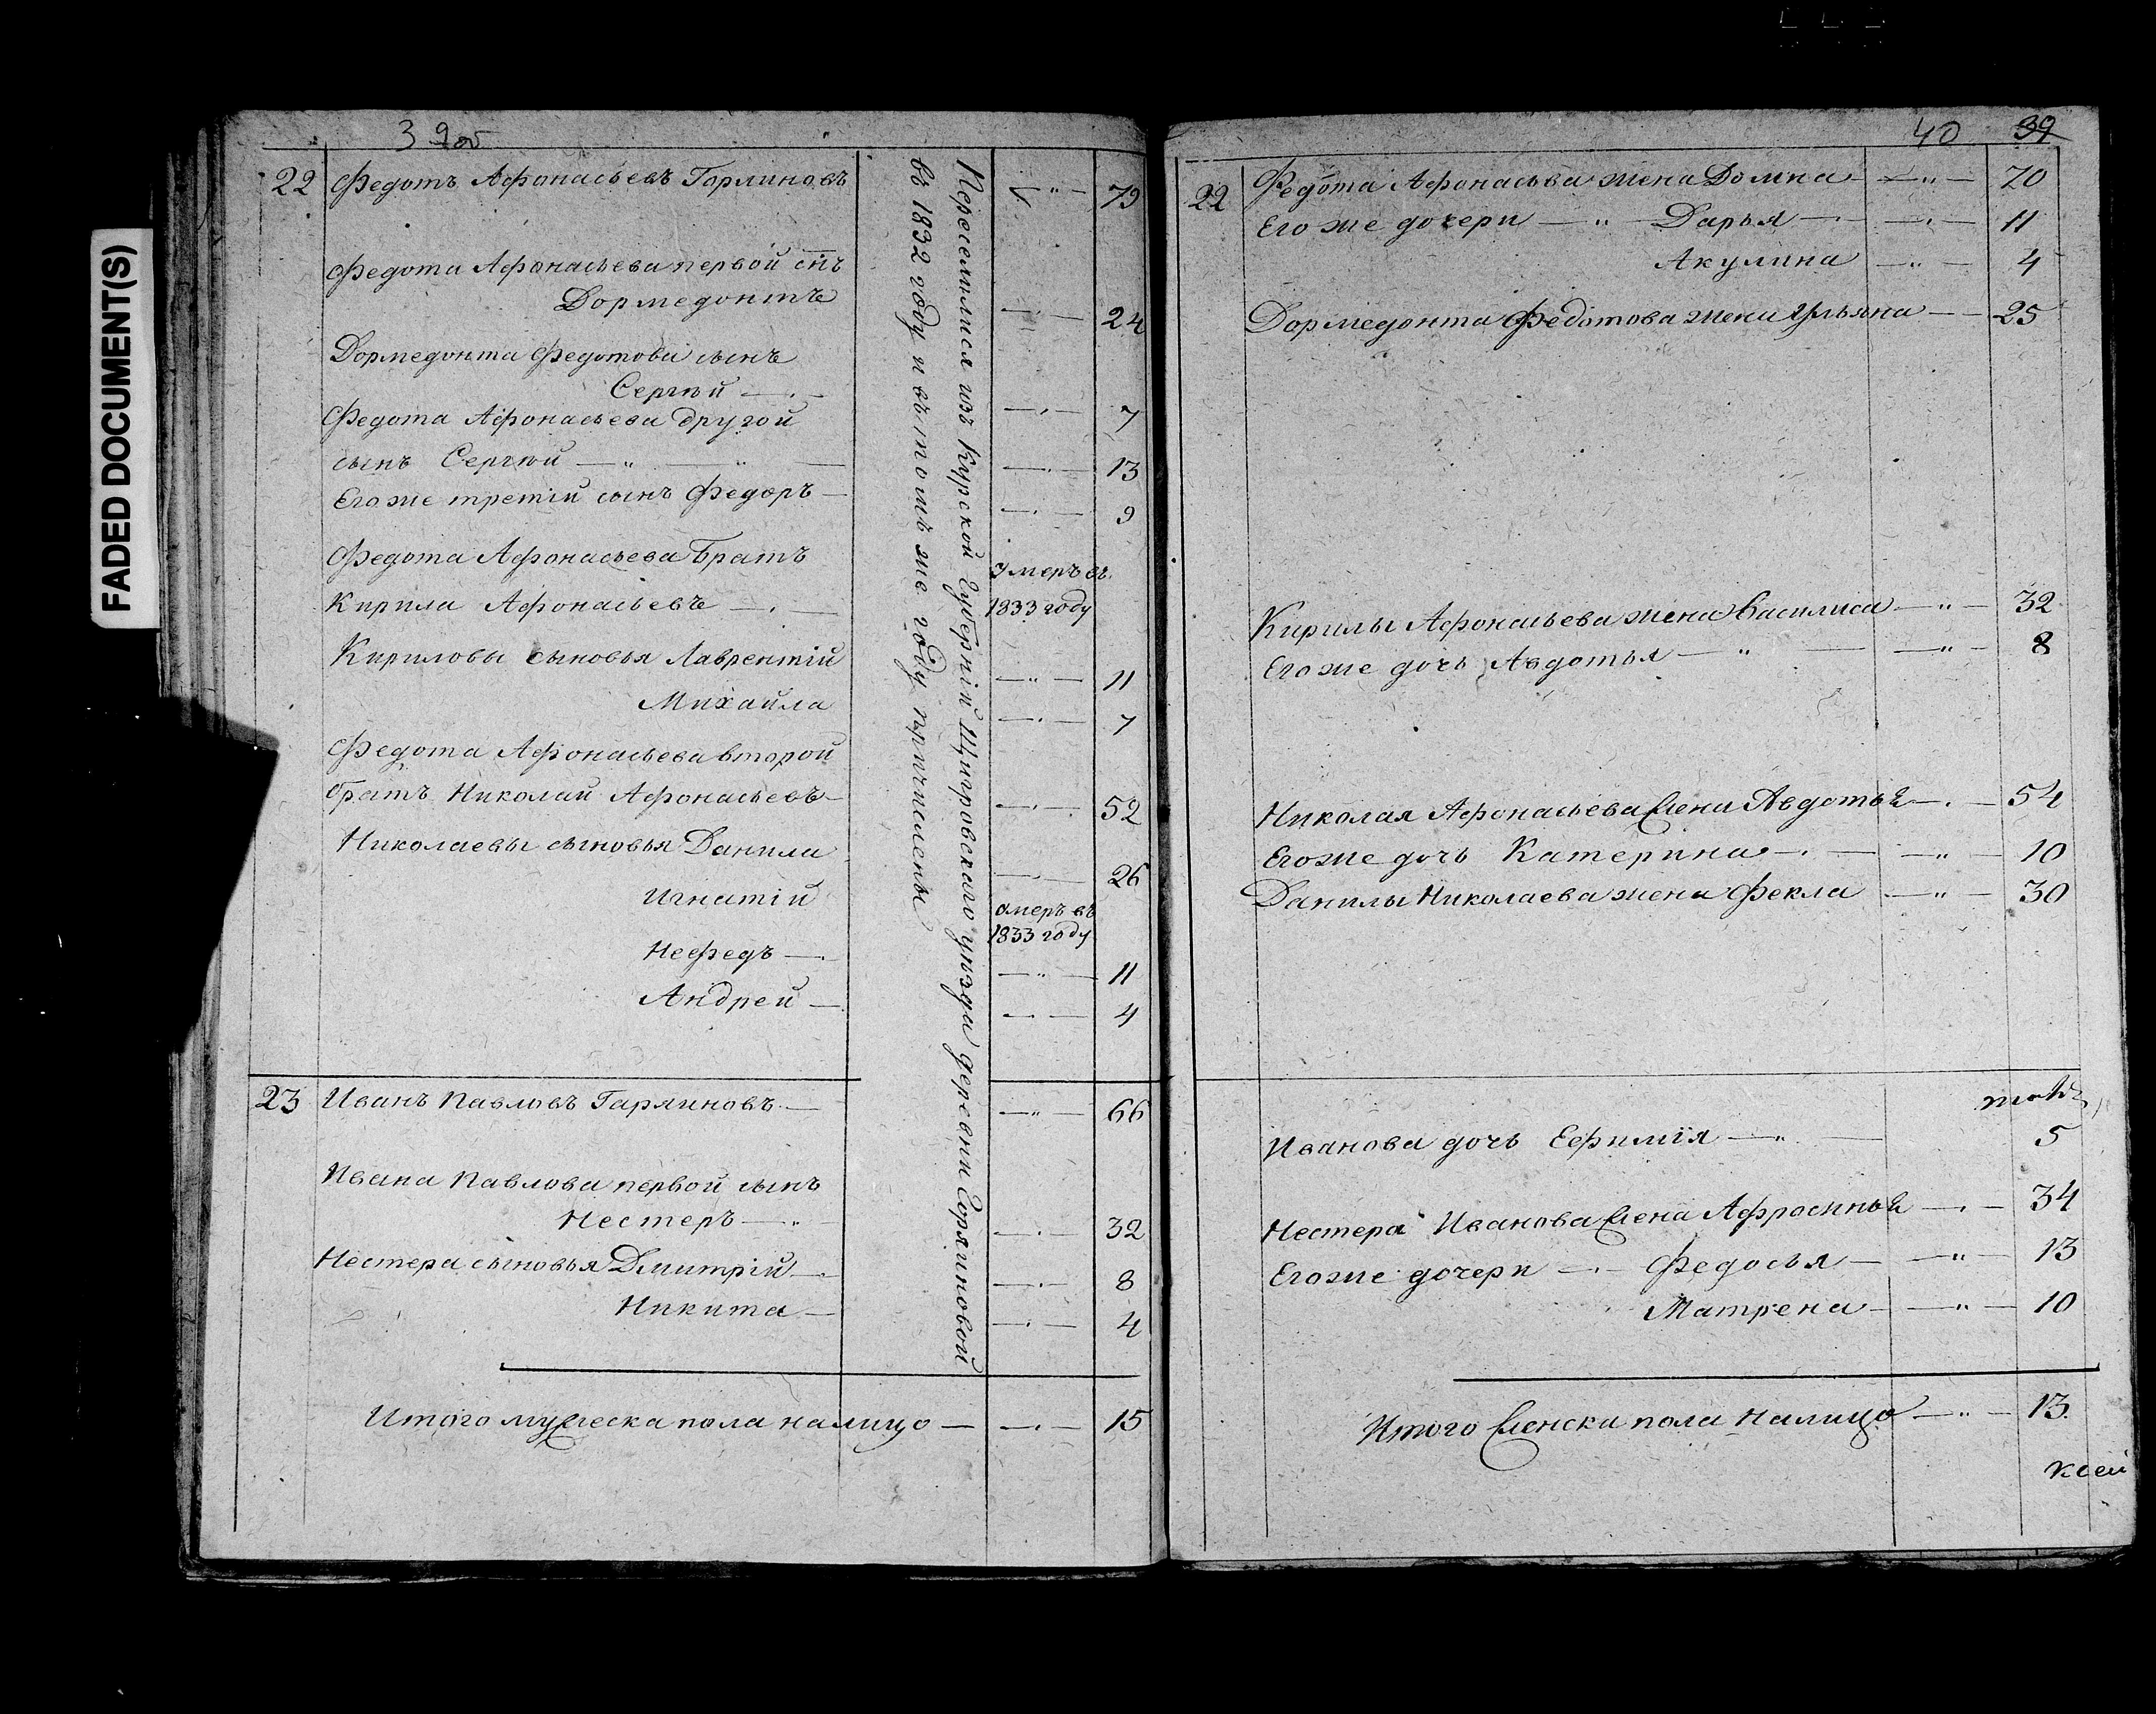 FADED DOCUMENT(S)
39 об
22 Федотъ Афонасьевъ Горяиновъ 79
Федота Афонасьева первой сн̃ъ
Дормедонтъ 24
Дормедонта Федотова сынъ
Сергѣй 7
Федота Афонасьева другой
сынъ Сергѣй 13
Его же третiй сынъ Федоръ 9
Федота Афонасьева братъ
умеръ въ
Кирила Афонасьевъ 1833 году
Кириловы сыновья Лаврентiй 11
Михайла 7
Федота Афонасьева второй
братъ Николай Афонасьевъ 52
Николаевы сыновья Данила 26
Игнатiй умеръ въ
1833 году
Нефедъ 11
Андрей 4
23 Иванъ Павловъ Гаряиновъ 66
Ивана Павлова первой сынъ
Нестеръ 32
Нестера сыновья Дмитрiй 8
Никита 4
Итого мужеска пола налицо 15
Переселились изъ Курской Губернiй Щигровскаго уѣзда деревни Горяиновой
въ 1832 году и въ томъ же году причислены
40 39
22 Федота Афонасьва жена Домна 70
Его же дочери Дарья 11
Акулина 4
Дормедонта Федотова жена Ульяна 25
Кирилы Афонасьева жена Василиса 32
Его же дочь Авдотья 8
Николая Афонасьева жена Авдотья 54
Его же дочь Катерина 10
Данилы Николаева жена Фекла 30
Иванова дочь Ефимiя 5
Нестера Иванова жена Афросинья 34
Его же дочери Федосья 13
Матрена 10
Итого женска пола налицо 13
ксей